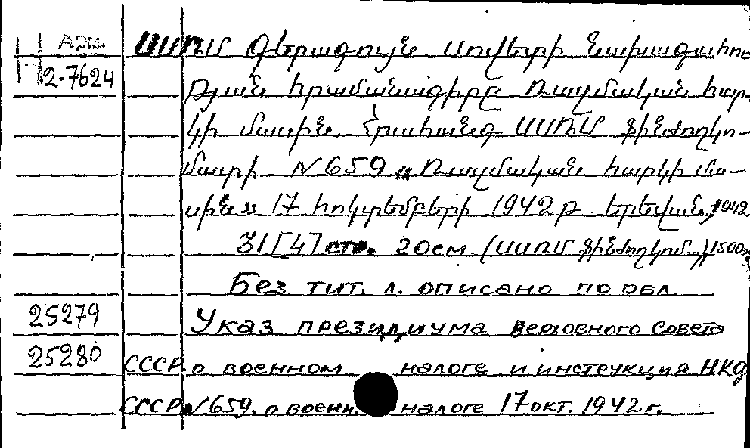 Арм ՍՍՌՄ Գերագույն Սովետի Նախագահու-
2-7624 թյան հրամանագիրը Ռազմական հար-
կի մասին. Հրահանգ ՍՍՌՄ Ֆինժողկո-
մատի N 659 „Ռազմական հարկի մա-
սին» 17 հոկտեմբերի 1942 թ. Երևան, 1942
31 [4] стр. 20см (ՍՍՌՄ Ֆինժողկոմ.) 1500
Без тит. л. описано по обл.
25279 Указ президиума верховного Совета
25280 СССР о военном налоге и инструкция НКФ
СССР N 659. о военн. налоге 17 окт. 1942 г.